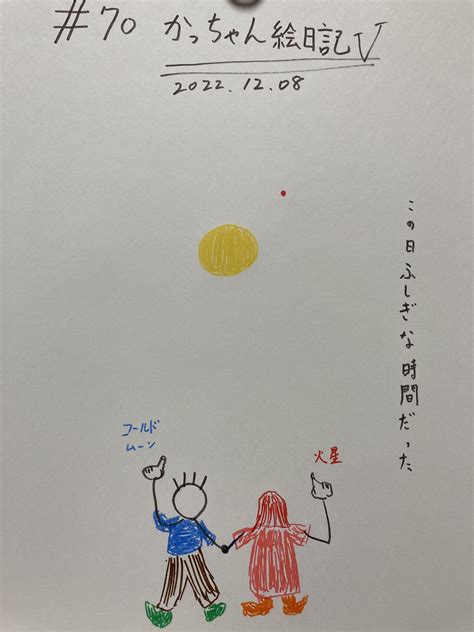 #70 かっちゃん絵日記V
2022.12.08
この日ふしぎな時間だった
コールド
ムーン
火星